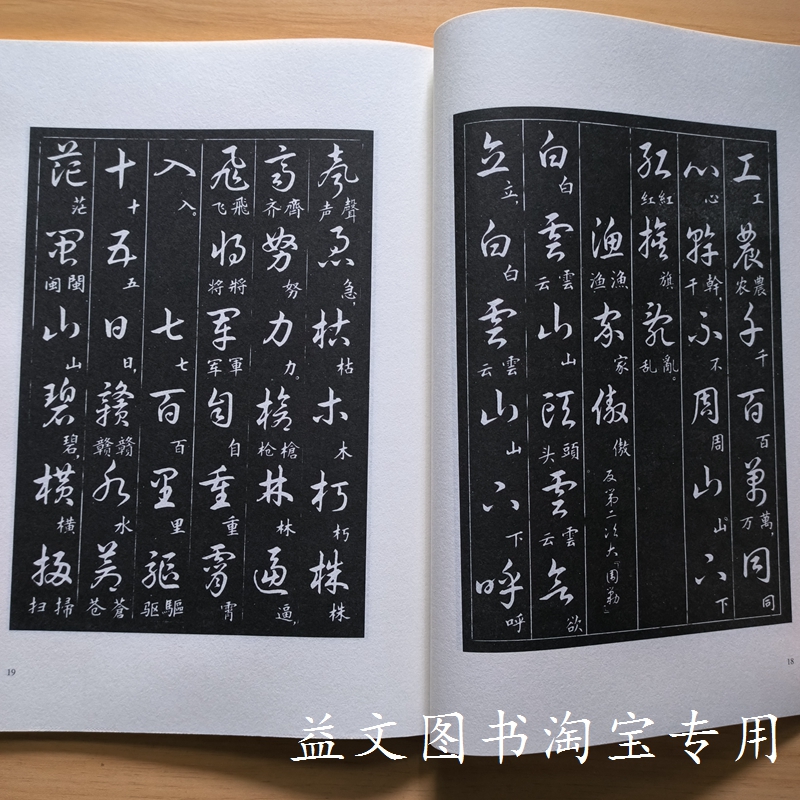 工工農农農千千百百萬万萬,同同
心心幹干幹,不不周周山山下下
紅红紅旗旗亂乱亂。
漁渔漁家家傲傲反第二次大「圍勦」
白白雲云雲山山頭头頭雲云雲欲欲
立立,白白雲云雲山山下下呼呼
18
聲声聲急急,枯枯木木朽朽株株
齊齐齊努努力力。槍枪槍林林逼逼,
飛飞飛將将將軍军軍自自重重霄霄
入入。七七百百里里驅驱驅
十十五五日日,贛赣贛水水蒼苍蒼
茫茫閩闽閩山山碧碧,橫橫掃扫掃
19
益文图书淘宝专用